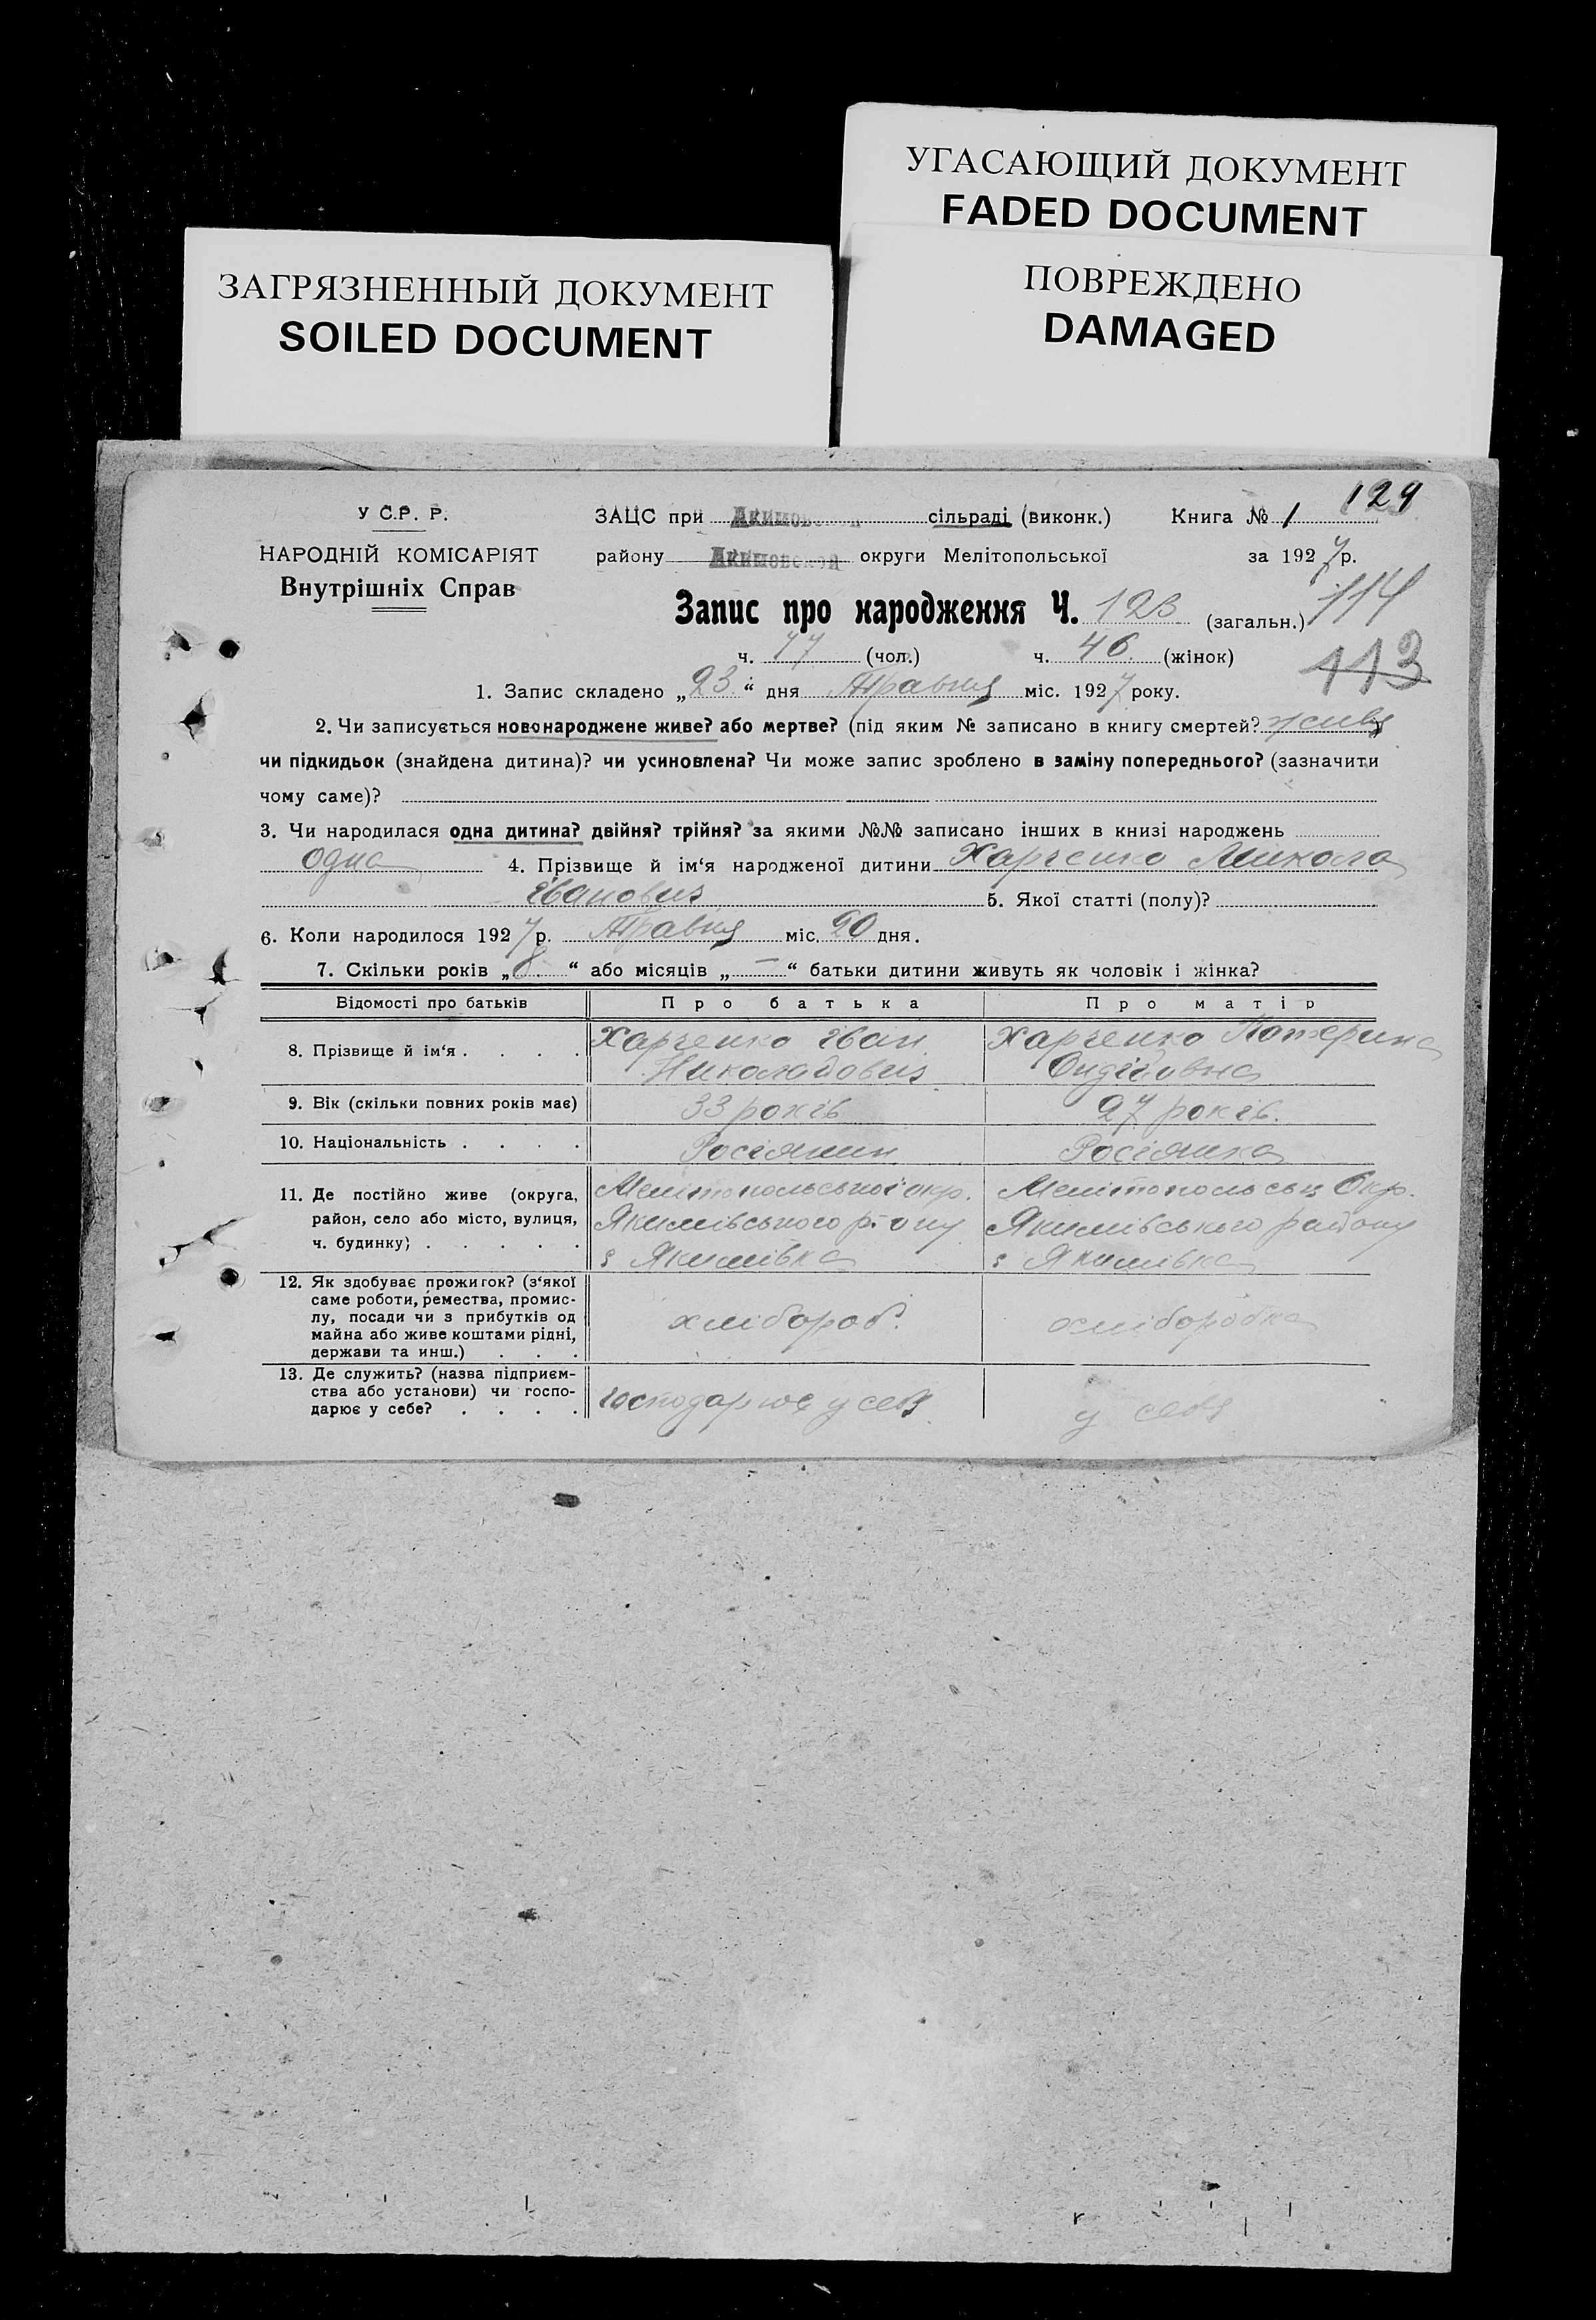 УГАСАЮЩИЙ ДОКУМЕНТ
FADED DOCUMENT
ЗАГРЯЗНЕННЫЙ ДОКУМЕНТ
SOILED DOCUMENT
ПОВРЕЖДЕНО
DAMAGED
129
У С.Р. Р.
ЗАЦС при сільраді (виконк.) Книга № 1
НАРОДНІЙ КОМІСАРІЯТ
Внутрішніх Справ
району Акимовской округи Мелітопольської за 1927 р.
Запис про народження Ч. 123 (загальн.) 114
ч. 77 (чол.) ч. 46 (жінок)
113
1. Запис складено „23“ дня Травня міс. 1927 року.
2. Чи записується новонароджене живе? або мертве? (під яким № записано в книгу смертей?
чи підкидьок (знайдена дитина)? чи усиновлена? Чи може запис зроблено в заміну попереднього? (зазначити
чому саме)?
3. Чи народилася одна дитина? двійня? трійня? за якими №№ записано інших в книзі народжень
одна 4. Прізвище й ім‘я народженої дитини Харченко Микола
Іванович 5. Якої статті (полу)?
6. Коли народилося 1927 р. Травня міс. 20 дня.
7. Скільки років „8“ або місяців „—“ батьки дитини живуть як чоловік і жінка?
Відомості про батьків Про батька Про матір
8. Прізвище й ім‘я . . . . Харченко Іван Харченко Катерина
9. Вік (скільки повних років має) 33 років 27 років.
10. Національність . . . . Росіянин Росіянка
11. Де постійно живе (округа, Мелітопольської окр. Мелітопольськ Окр.
район, село або місто, вулиця, Якимівського р-ону Якимівського району
ч. будинку) . . . . . с Якимівка с Якимівка
12. Як здобуває прожиток? (з‘якої
саме роботи, ремества, промис-
лу, посади чи з прибутків од хлібороб. хліборобка
майна або живе коштами рідні,
держави та инш.) . . .
13. Де служить? (назва підприєм-
ства або установи) чи госпо- господарює у себя у себя
дарює у себе? . . . .